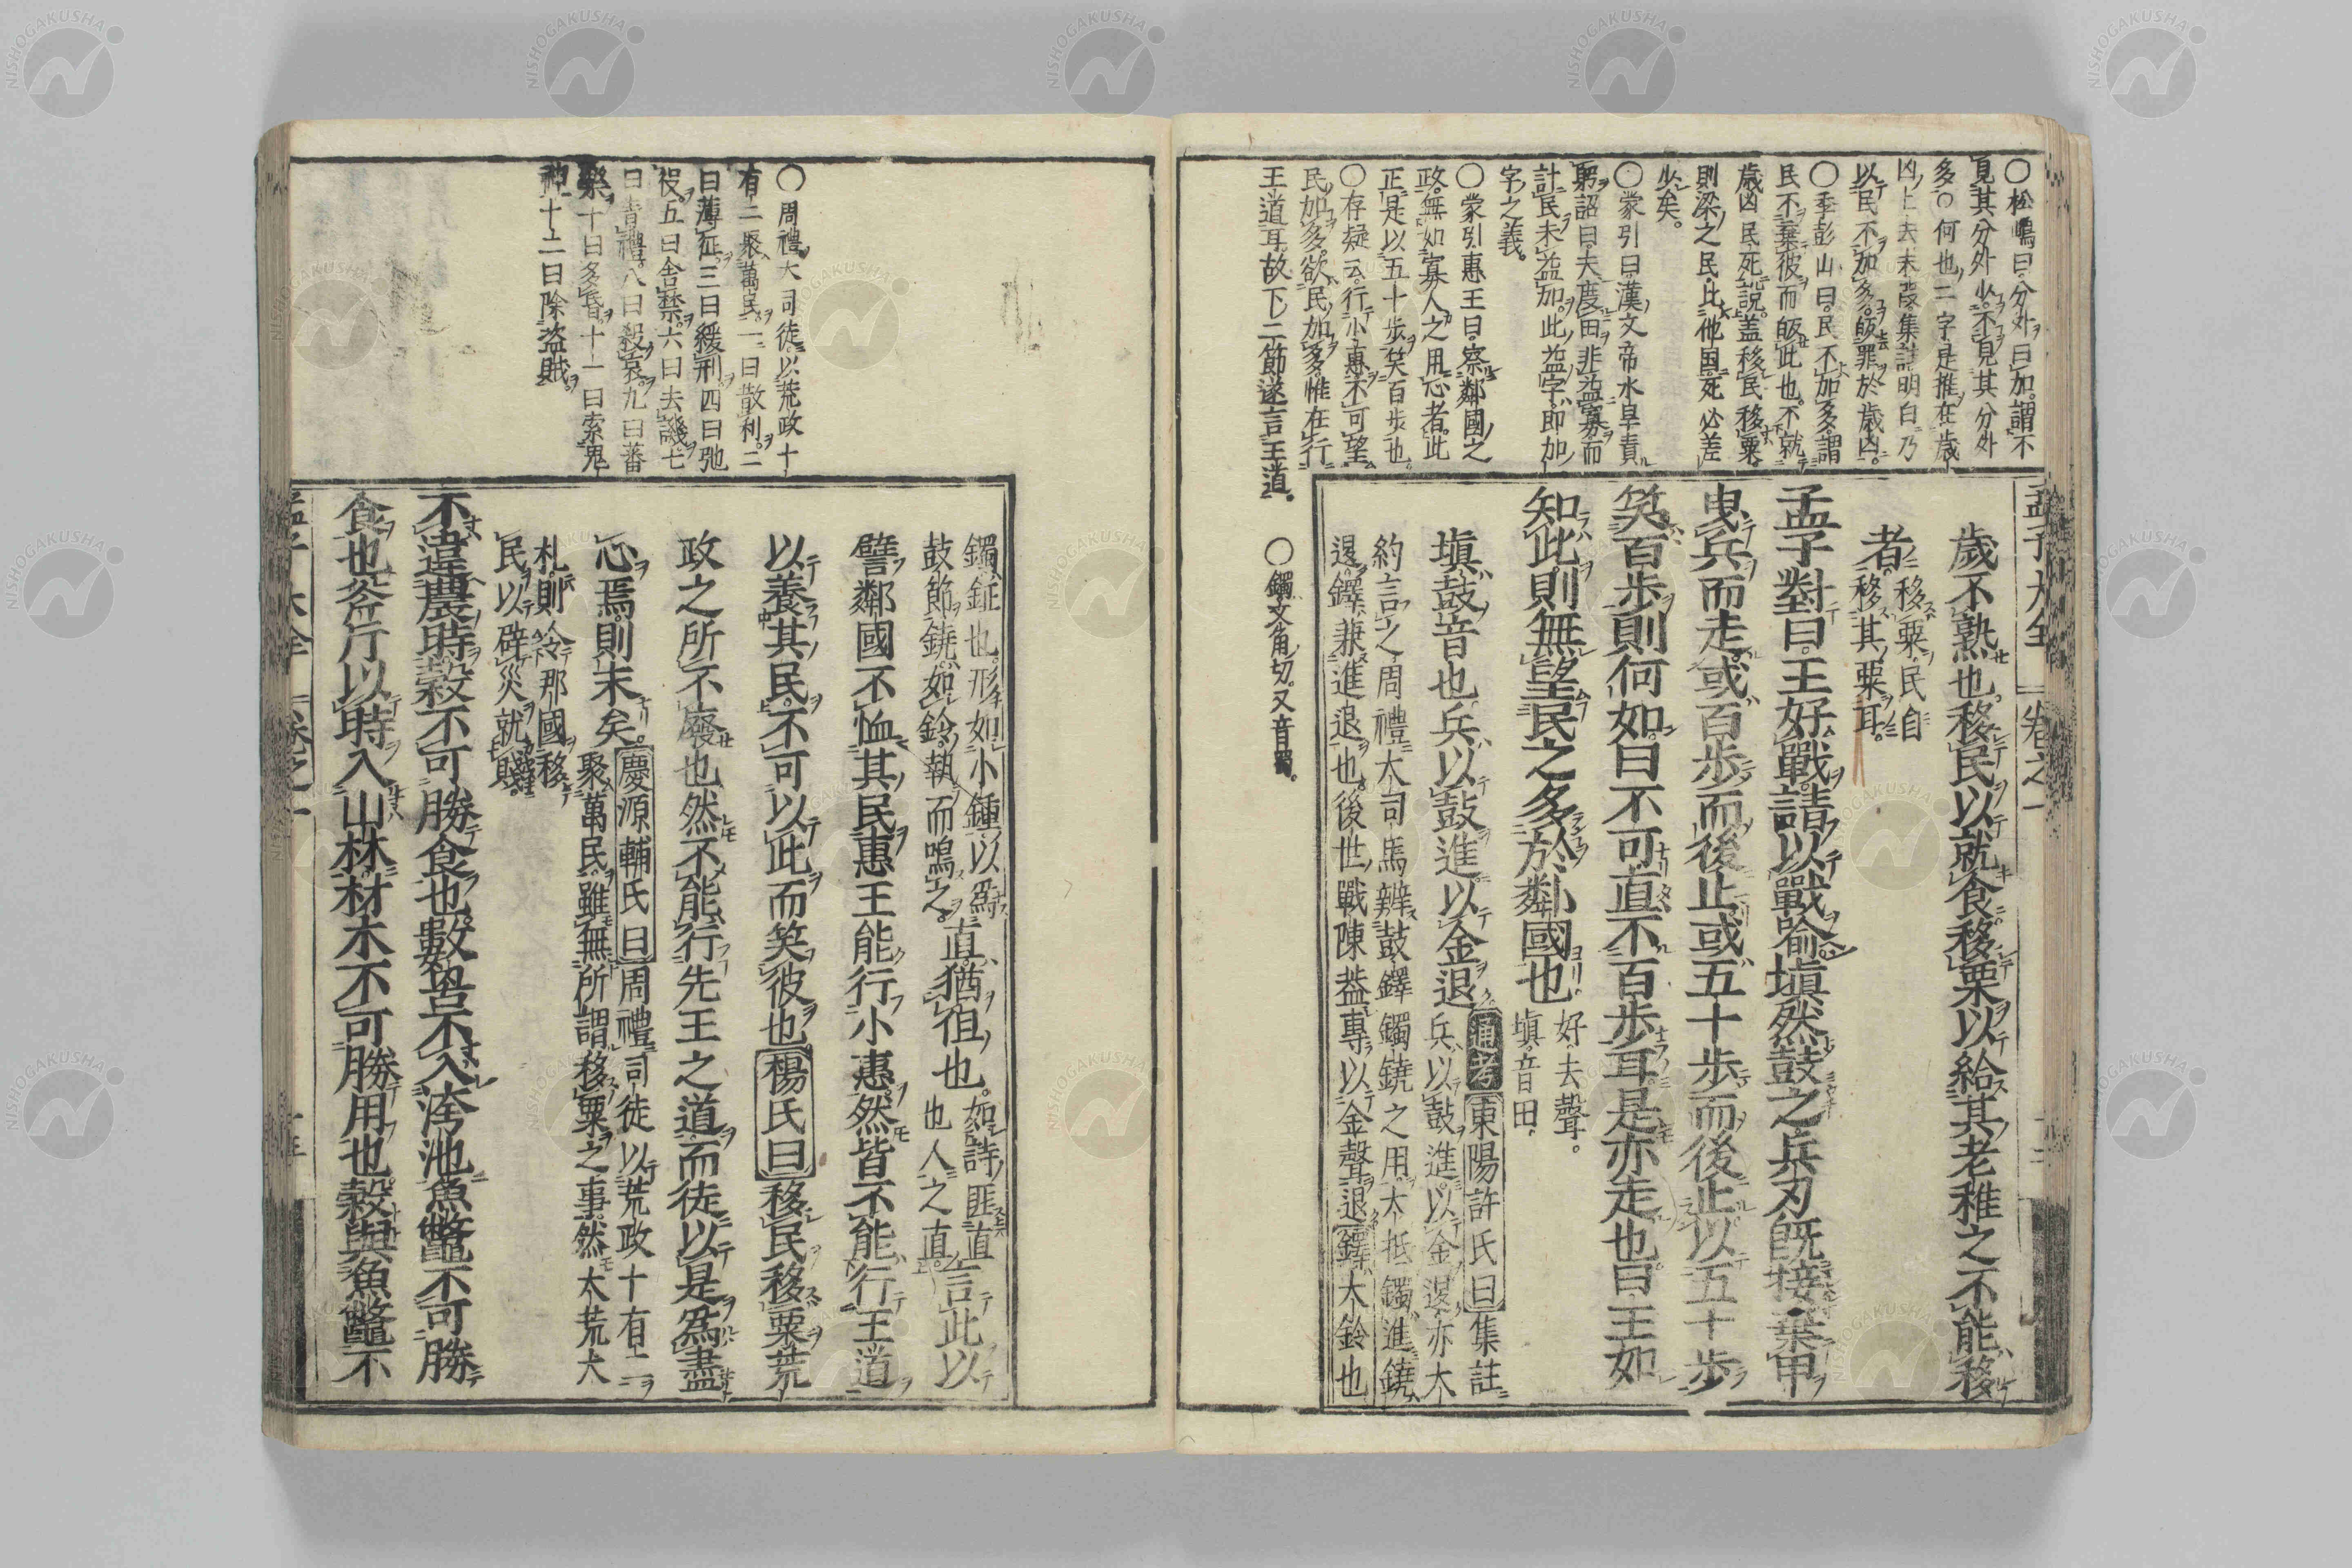 〇松嶋曰分外曰加謂不
見其分外少不見其分外
多〇何也二字是推在歲
凶上去末段集註明白乃
以民不加多皈罪於歲凶
〇季彭山曰民不加多謂
民不棄彼而皈此也不就
歲凶民死說蓋移民移粟
則梁之民比他国死必差
少矣
〇蒙引曰漢文帝水旱責
躬詔曰夫度田非益寡而
計民未益加此益字即加
字之義
〇蒙引惠王曰察鄰國之
政無如寡人之用心者此
正是以五十歩笑百歩也
〇存疑云行小惠不可望
民加多欲民加多惟在行
王道耳故下二節遂言王道
〇鐲文角切又音蜀
孟子大全 卷之一
歲不熟也移民以就食移粟以給其老稚之不能移
者移粟民自
移其粟耳
孟子對曰王好戰請以戰喻塡然鼓之兵刃既接棄甲
曳兵而走或百步而後止或五十步而後止以五十步
笑百步則何如曰不可直不百步耳是亦走也曰王如
知此則無望民之多於鄰國也
好去聲
塡音田
塡鼓音也兵以鼓進以金退
通考東陽許氏曰集註
兵以鼓進以金退亦大
約言之周禮大司馬辨鼓鐸鐲鐃之用大抵鐲進鐃
退鐸兼進退也後世戰陳蓋專以金聲退鐸大鈴也
〇周禮大司徒以荒政十
有二聚萬民一曰散利二
曰薄征三曰緩刑四曰弛
役五曰舍禁六曰去譏七
曰眚禮八曰殺哀九曰蕃
樂十曰多昏十一曰索鬼
神十二曰除盜賊
鐲鉦也形如小鍾以爲
鼓節鐃如鈴執而鳴之
直猶徂也
如詩匪直
也人之直
言此以
譬鄰國不恤其民惠王能行小惠然皆不能行王道
以養其民不可以此而笑彼也楊氏曰移民移粟荒
政之所不廢也然不能行先王之道而徒以是爲盡
心焉則末矣
慶源輔氏曰周禮司徒以荒政十有二
聚萬民雖無所謂移粟之事然大荒大
札則令邦國移
民以辟災就賤
不違農時穀不可勝食也數罟不入洿池魚鼈不可勝
食也斧斤以時入山林材木不可勝用也穀與魚鼈不
孟子大全 卷之一